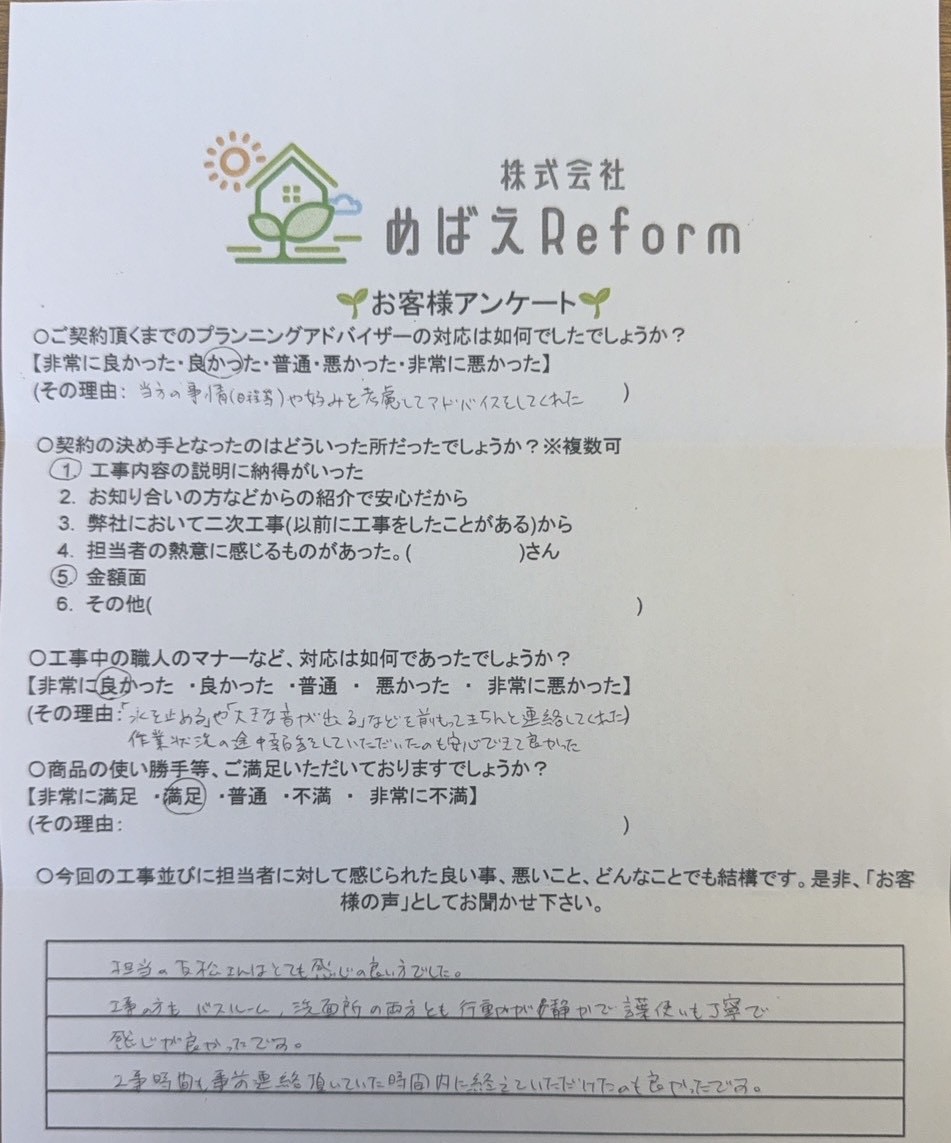 株式会社
めばえReform
お客様アンケート
○ご契約頂くまでのプランニングアドバイザーの対応は如何でしたでしょうか?
【非常に良かった・良かった・普通・悪かった・非常に悪かった】
(その理由: 当方の事情(日程等)や好みを考慮してアドバイスをしてくれた )
○契約の決め手となったのはどういった所だったでしょうか?※複数可
1. 工事内容の説明に納得がいった
2. お知り合いの方などからの紹介で安心だから
3. 弊社において二次工事(以前に工事をしたことがある)から
4. 担当者の熱意に感じるものがあった。( )さん
5. 金額面
6. その他( )
○工事中の職人のマナーなど、対応は如何であったでしょうか?
【非常に良かった ・良かった ・普通 ・ 悪かった ・ 非常に悪かった】
(その理由:「水を止める」や「大きな音が出る」などを前もってきちんと連絡してくれた)
作業状況の途中報告をしていただいたのも安心できて良かった
○商品の使い勝手等、ご満足いただいておりますでしょうか?
【非常に満足 ・満足 ・普通 ・不満 ・ 非常に不満】
(その理由: )
○今回の工事並びに担当者に対して感じられた良い事、悪いこと、どんなことでも結構です。是非、「お客
様の声」としてお聞かせ下さい。
担当の友松さんはとても感じの良い方でした。
工事の方も バスルーム、洗面所の両方とも 行動が静かで 言葉使いも丁寧で
感じが良かったです。
工事時間も事前連絡頂いていた時間内に終えていただけたのも良かったです。